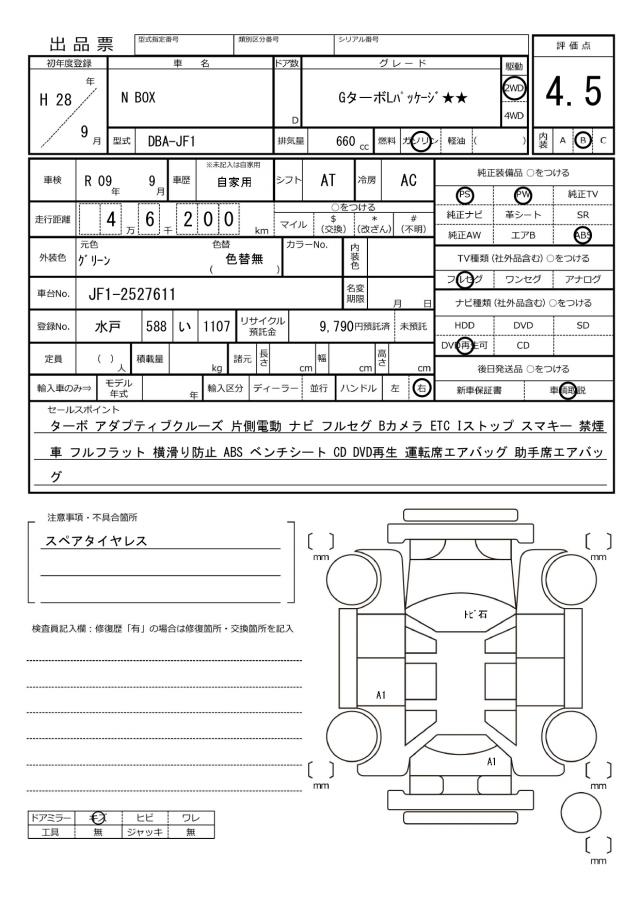 出品票
型式指定番号
類別区分番号
シリアル番号
評価点
4.5
初年度登録
車名
ドア数
グレード
駆動
H 28 年
9 月
N BOX
D
GターボLパッケージ★★
2WD
4WD
型式
DBA-JF1
排気量
660 cc
燃料
ガソリン
軽油
( )
内装
A
B
C
車検
R 09 年 9 月
車歴
※未記入は自家用
自家用
シフト
AT
冷房
AC
純正装備品 ○をつける
PS
PW
純正TV
純正ナビ
革シート
SR
純正AW
エアB
ABS
走行距離
4 万 6 千 2 0 0 km
○をつける
マイル
$ (交換)
* (改ざん)
# (不明)
外装色
元色
グリーン
色替
( 色替無 )
カラーNo.
内装色
TV種類 (社外品含む) ○をつける
フルセグ
ワンセグ
アナログ
車台No.
JF1-2527611
名変期限
月 日
ナビ種類 (社外品含む) ○をつける
HDD
DVD
SD
DVD再生可
CD
登録No.
水戸
588
い
1107
リサイクル預託金
9,790円預託済
未預託
定員
( ) 人
積載量
kg
諸元
長さ
cm
幅
cm
高さ
cm
後日発送品 ○をつける
新車保証書
車輌取説
輸入車のみ⇒
モデル年式
年
輸入区分
ディーラー
並行
ハンドル
左
右
セールスポイント
ターボ アダプティブクルーズ 片側電動 ナビ フルセグ Bカメラ ETC Iストップ スマキー 禁煙
車 フルフラット 横滑り防止 ABS ベンチシート CD DVD再生 運転席エアバッグ 助手席エアバッ
グ
注意事項・不具合箇所
スペアタイヤレス
検査員記入欄：修復歴「有」の場合は修復箇所・交換箇所を記入
〔 〕
mm
〔 〕
mm
トビ石
A1
A1
〔 〕
mm
〔 〕
mm
〔 〕
mm
ドアミラー
キズ
ヒビ
ワレ
工具
無
ジャッキ
無